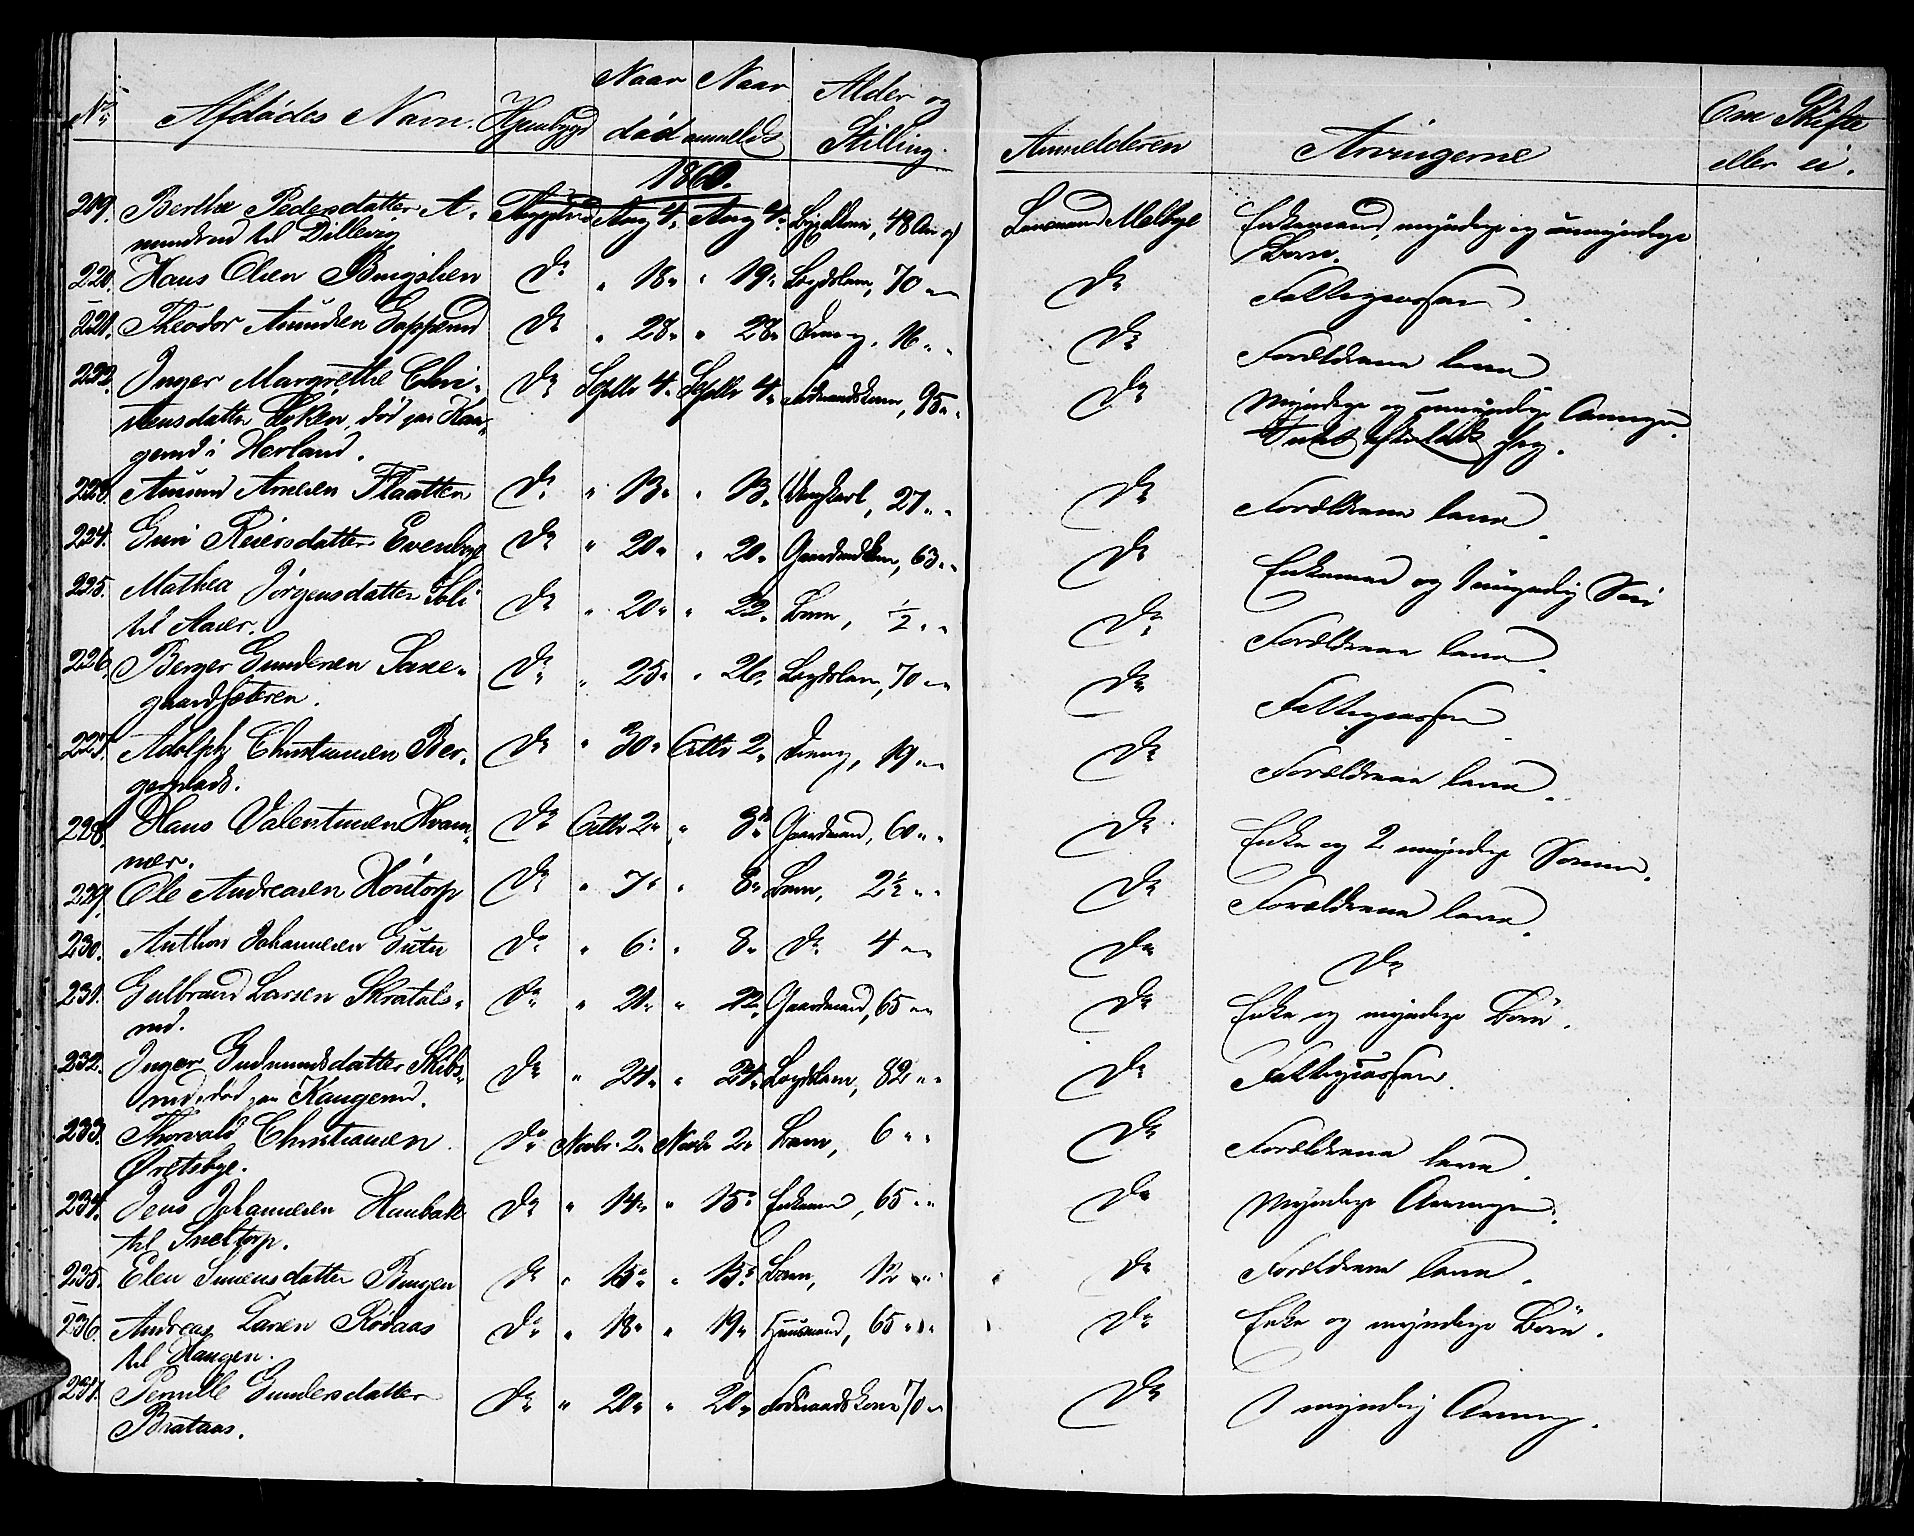 No. Afdødes Navn. Hjembygd Naar død Naar anmeldt Alder og Stilling. Anmelderen Arvingerne Om Skifte eller ei.
1860.
219. Berthe Pedersdatter A- Aug 4. Aug 4. 48 Aar Lensmand Melbye Enkemand, myndige og umyndige
mundrød til Dillevig Børn.
220. Hans Olsen Bingslien Do " 18. " 19. Lægdslem, 70 " Do Fattigcassen.
221. Theodor Amundsen Do " 28. " 28. Dreng, 16 " Do Forældrene leve.
222. Inger Margrethe Chri- Do Septbr 4. Septbr 4. Føderaadskone, 95 " Do Myndige og umyndige Arvinger.
stensdatter Løken, død paa Kau- Intet efterladt sig.
gerud i Herland.
223. Amund Arnesen Flaatten Do " 13. " 13. Ungkarl, 27 " Do Forældrene leve.
224. Guri Reiersdatter Evenbye Do " 20. " 20. Gaardmandskone, 63 " Do Enkemand og 1 myndig Søn
225. Mathea Jørgensdatter Soli Do " 20. " 22. Barn, ½ " Do Forældrene leve.
til Aaser.
226. Berger Gundersen Saxe- Do " 25. " 26. Lægdslem, 70 " Do Fattigcassen
gaardsætren.
227. Adolph Christiansen Ber- Do " 30. Octbr 2. Dreng, 19 " Do Forældrene leve.
gerplads.
228. Hans Valentinsen Hvam- Do Octbr 2. " 3. Gaardmand, 60 " Do Enke og 2 myndige Sønner.
mer.
229. Ole Andreasen Homtorp Do " 7. " 8. Barn, 2½ " Do Forældrene leve.
230. Anthon Johannesen Gutu Do " 6. " 8. Do 4 " Do Do
231. Gulbrand Larsen Skratals- Do " 21. " 22. Gaardmand, 65 " Do Enke og myndige Børn.
rud.
232. Inger Gudmundsdatter Skibs- Do " 24. " 24. Lægdslem, 82 " Do Fattigcassen.
rud, død paa Kaugerud.
233. Thorvald Christiansen Do Novbr 2. Novbr 2. Barn, 6 " Do Forældrene leve.
Øretsbye.
234. Jens Johannesen Hunbak Do " 14. " 15. Enkemand, 65 " Do Myndige Arvinger.
til Sneltorp.
235. Elen Simensdatter Bingen Do " 15. " 15. Barn, 12 " Do Forældrene leve.
236. Andreas Larsen Rødaas Do " 18. " 19. Huusmand, 65 " Do Enke og myndige Børn.
til Haugen.
237. Pernille Gundersdatter Do " 20. " 20. Føderaadskone 70 " Do 1 myndig Arving.
Brataas.